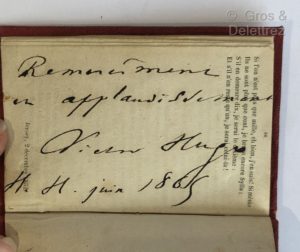 © Gros &
Delettrez
Remerciement
et applaudissement
Victor Hugo
H. H. juin 1865
Si l'on n'est plus que mille, eh bien, j'en suis! Si même
Ils ne sont plus que cent, je brave encore Sylla;
S'il en demeure dix, je serai le dixième;
Et s'il n'en reste qu'un, je serai celui-là!
Jersey, 2 décembre